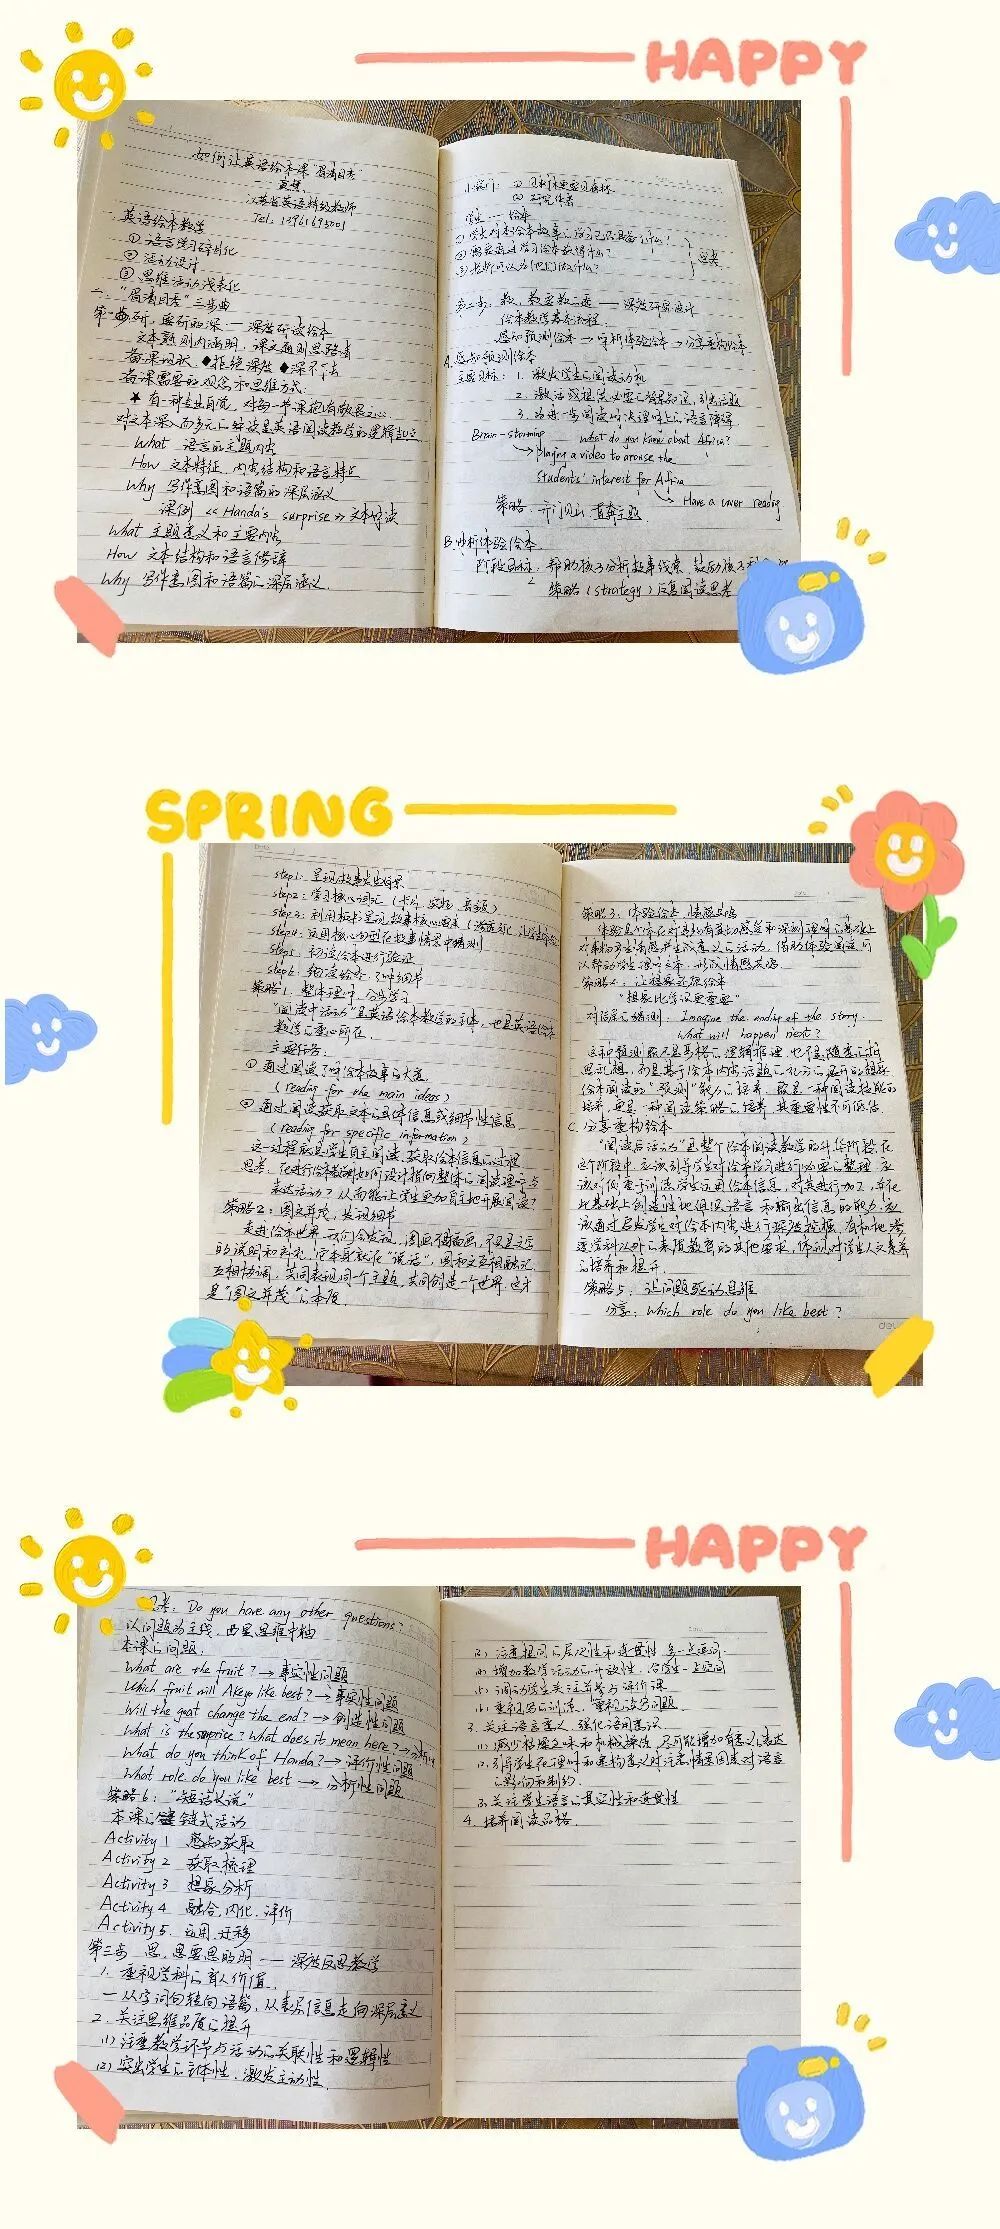 HAPPY
如何让英语绘本课"眉清目秀"
江苏省英语特级教师
Tel. 13961695001
一. 英语绘本教学
① 语言学习碎片化
② 活动设计
③ 思维活动浅表化
二. "眉清目秀"三步曲
第一步:研,要研的深 —— 深度研读绘本
文本熟则内涵明,课文通则思路清
备课现状 ◆拒绝深度 ◆深不了
备课需要的观念和思维方式:
★ 有一种专业自觉,对每一节课抱有敬畏之心
对文本深入而多元的解读是英语阅读教学的逻辑起点
What 语言的主题内容
How 文本特征、内容结构和语言特点
Why 写作意图和语篇的深层涵义
课例 《Handa's surprise》文本解读
What 主题意义和主要内容
How 文本结构和语言修辞
Why 写作意图和语篇的深层涵义.
小窍门: ① 见树木更要见森林
② 研究作者
学生 —— 绘本
① 学生对本绘本故事的学习已具备什么?
② 需要通过学习绘本获得什么?
③ 老师可以为(他们)做什么?
思考
第二步:教,教要教的 —— 深度研究设计
绘本教学基本流程:
感知预测绘本 → 解析体验绘本 → 分享重构绘本
A. 感知预测绘本
主要目标: 1. 激发学生的阅读动机
2. 激活或提供必要的背景知识,引出主题
3. 为进一步阅读解决理解上的语言障碍
Brain-storming what do you know about Africa?
→ playing a video to arouse the
students' interest for Africa
→ Have a cover reading
策略: 开门见山 直奔主题
B. 解析体验绘本
阶段目标: 帮助孩子分析故事线索,鼓励孩子
策略 (strategy) 反复阅读思考
SPRING
step1: 呈现故事发生背景
step2: 学习核心词汇 (卡片、实物、音频)
step3: 利用板书呈现故事核心要素
step4: 运用核心句型在故事情景中猜测
step5: 初读绘本进行验证
step6: 细读绘本,了解细节
策略1: 整体理解,分步学习
"阅读中活动"是英语绘本教学的主体,也是英语绘本
教学的重心所在.
主要任务:
① 通过阅读了解绘本故事的大意.
(reading for the main ideas)
② 通过阅读获取文本的具体信息或细节性信息.
(reading for specific information)
这一过程就是学生自主阅读、获取绘本信息的过程
思考: 在进行绘本教学时如何设计指向整体的阅读理解与
表达活动?从而能让学生更加自主地开展阅读?
策略2: 图文并茂,发现细节
走进绘本世界,我们会发现,图画不再是文字
的说明和补充,它本身就在"说话",图和文互相融汇,
互相协调,共同表现同一个主题,共同创造一个世界,这才
是"图文并茂"的本质.
策略3: 体验绘本,情感共鸣
体验是个体在对事物有真切感受和深刻理解的基础上
对事物产生情感并生成意义的活动.借助体验阅读可
以帮助学生理解文本,形成情感共鸣
策略4: 让想象走进绘本
"想象比知识更重要"
对结尾的猜测: Imagine the ending of the story.
What will happen next?
这种预测既不是严格的逻辑推理,也不是随意的胡
思乱想,而是基于绘本内容、话题的充分的展开的想象.
绘本阅读的"预测"能力的培养,既是一种阅读技能的
培养,更是一种阅读策略的培养,其重要性不可低估.
C. 分享重构绘本
"阅读后活动"是整个绘本阅读教学的升华阶段.在
这个阶段中,应该引导学生对绘本学习进行必要的整理,应
该不仅重于训练学生运用绘本信息,对其进行加工,并在
此基础上创造性地组织语言和输出信息的能力,应
该通过启发学生对绘本内容进行深度挖掘,有机地渗
透学科以外的素质教育的其他要求,体现对学生人文素养
的培养和提升.
策略5: 让问题驱动思维
分享: Which role do you like best?
HAPPY
思考: Do you have any other questions?
以问题为主线,凸显思维中轴
本课的问题:
What are the fruit? → 事实性问题
Which fruit will Akeyo like best? → 事实性问题
Will the goat change the end? → 创造性问题
What is the surprise? What does it mean here? →
What do you think of Handa? → 评价性问题
What role do you like best → 分析性问题
策略6: "短话长说"
本课的链式活动
Activity 1 感知.获取
Activity 2 获取.梳理
Activity 3 想象.分析
Activity 4 融合.内化.评价
Activity 5. 运用.迁移
第三步 思,思要思的明 —— 深度反思教学
1. 重视学科的育人价值.
— 从字词句转向语篇,从表层信息走向深层意义
2. 关注思维品质的提升
(1) 注重教学环节与活动的关联性和逻辑性
(2) 突出学生的主体性,激发主动性.
(3) 注意提问的层次性和连贯性,多一点追问.
(4) 增加教学活动的开放性,给学生一点空间
(5) 调动学生关注并参与评价课
(6) 重视写的训练,重视读写问题
3. 关注语言意义,强化语用意识
(1) 减少枯燥乏味和机械操练,尽可能增加有意义的表达
(2) 引导学生在理解和建构意义时注意情景因素对语言
的影响和制约.
(3) 关注学生语言的真实性和连贯性
4. 培养阅读品格.